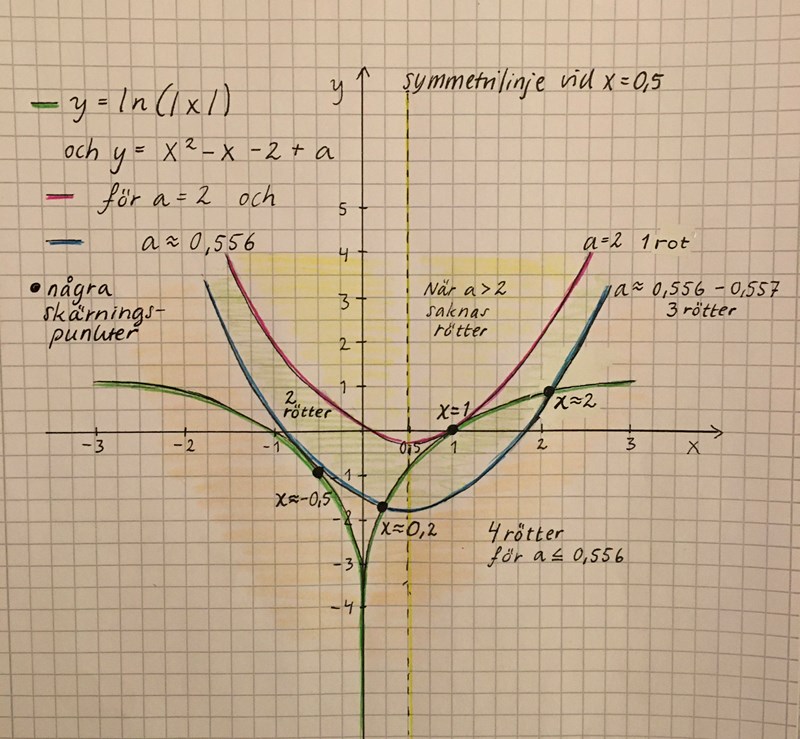 y
symmetrilinje vid x = 0,5
y = ln(|x|)
och y = x² - x - 2 + a
för a = 2 och
a ≈ 0,556
• några
skärnings-
punkter
5
4
3
2
1
a = 2 1 rot
a ≈ 0,556 - 0,557
3 rötter
När a > 2
saknas
rötter
2
rötter
x = 1
x ≈ 2
-3 -2 -1 0,5 1 2 3 x
-1
x ≈ -0,5
-2
x ≈ 0,2
4 rötter
för a ≤ 0,556
-3
-4